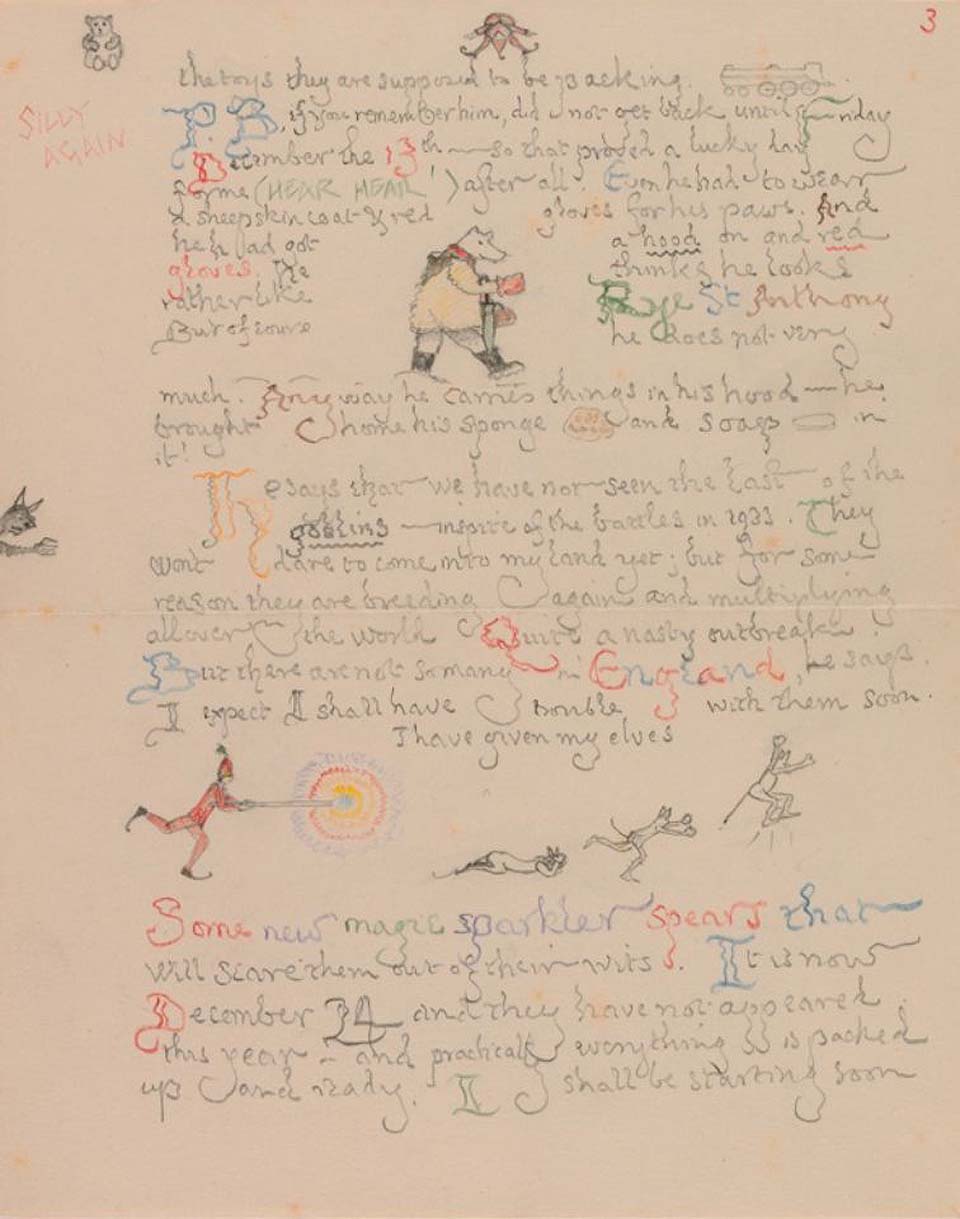 3
the toys they are supposed to be packing.
SILLY
AGAIN
P.B, if you remember him, did not get back until Friday
December the 13th — so that proved a lucky day
for me (HEAR HEAR!) after all. Even he had to wear
a sheepskin coat & red gloves for his paws. And
he had got a hood on and red
gloves. He thinks he looks
rather like Rye St Anthony
But of course he does not very
much. Anyway he carries things in his hood — he
brought home his sponge and soap in
it!
He says that we have not seen the last of the
goblins — inspite of the battles in 1933. They
wont dare to come into my land yet; but for some
reason they are breeding again and multiplying
all over the world. Quite a nasty outbreak.
But there are not so many in England, he says.
I expect I shall have trouble with them soon.
I have given my elves
Some new magic sparkler spears that
will scare them out of their wits. It is now
December 24 and they have not appeared
this year — and practically everything is packed
up and ready. I shall be starting soon